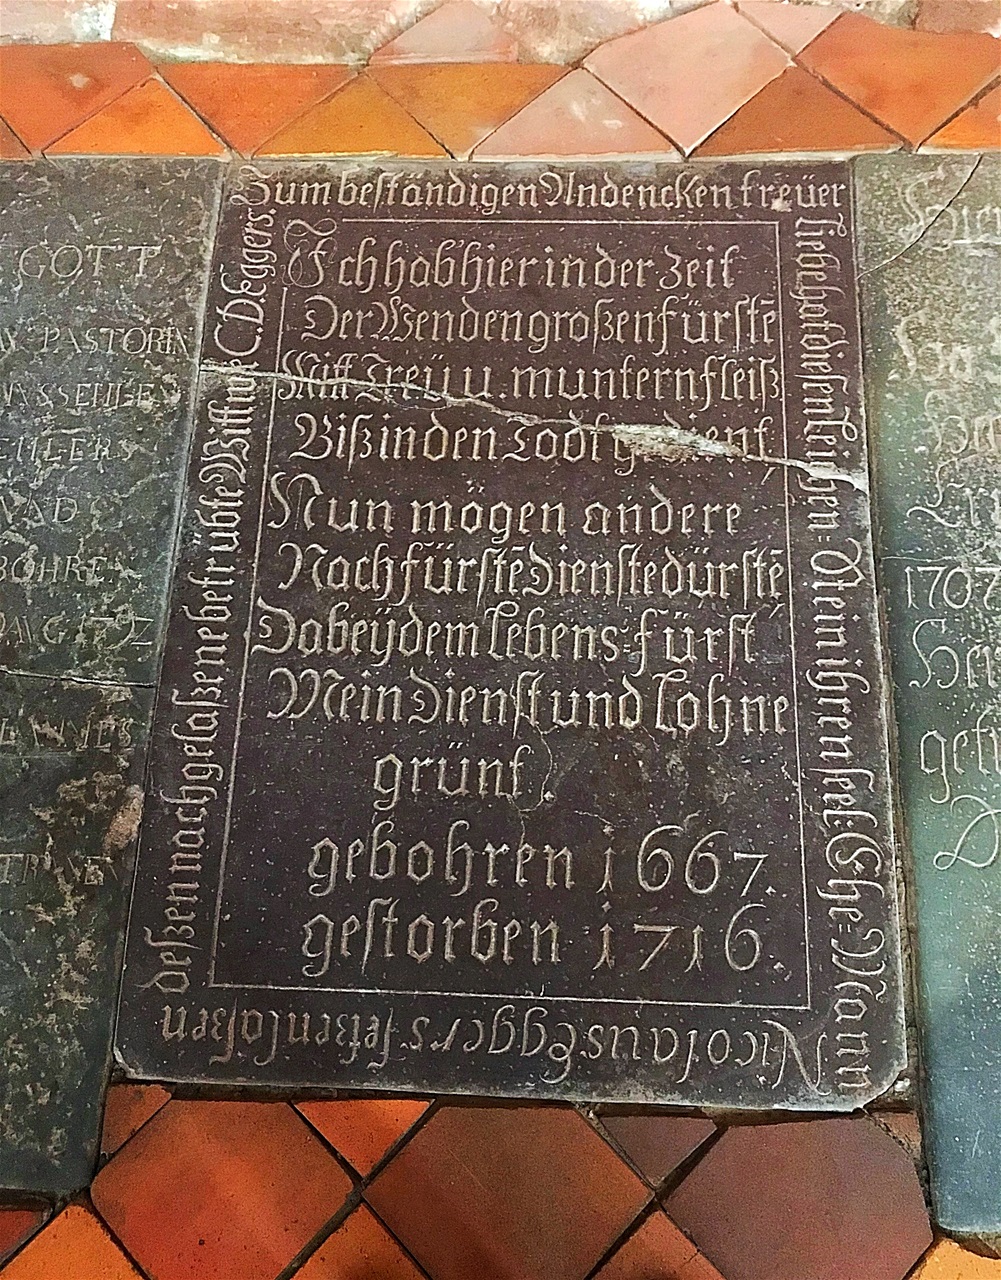 Zum beständigen Andencken treüer
Liebe hat diesen Leichen = Stein ihren seel: Ehe = Mann
Nicolaus Eggers setzen laßen
deßen nachgelaßene betrübte Wittwe C. D. Eggers.
Ich hab hier in der Zeit
Der Wenden großen fürstē
Mitt Treü u. muntern fleiß
Biß in den Todt gedient
Nun mögen andere
Nach fürstē Dienste dürstē
Da beÿ dem Lebens = fürst
Mein Dienst und Lohne
grünt.
gebohren 1667.
gestorben 1716.
GOTT
PASTORIN
EHLERS
1707